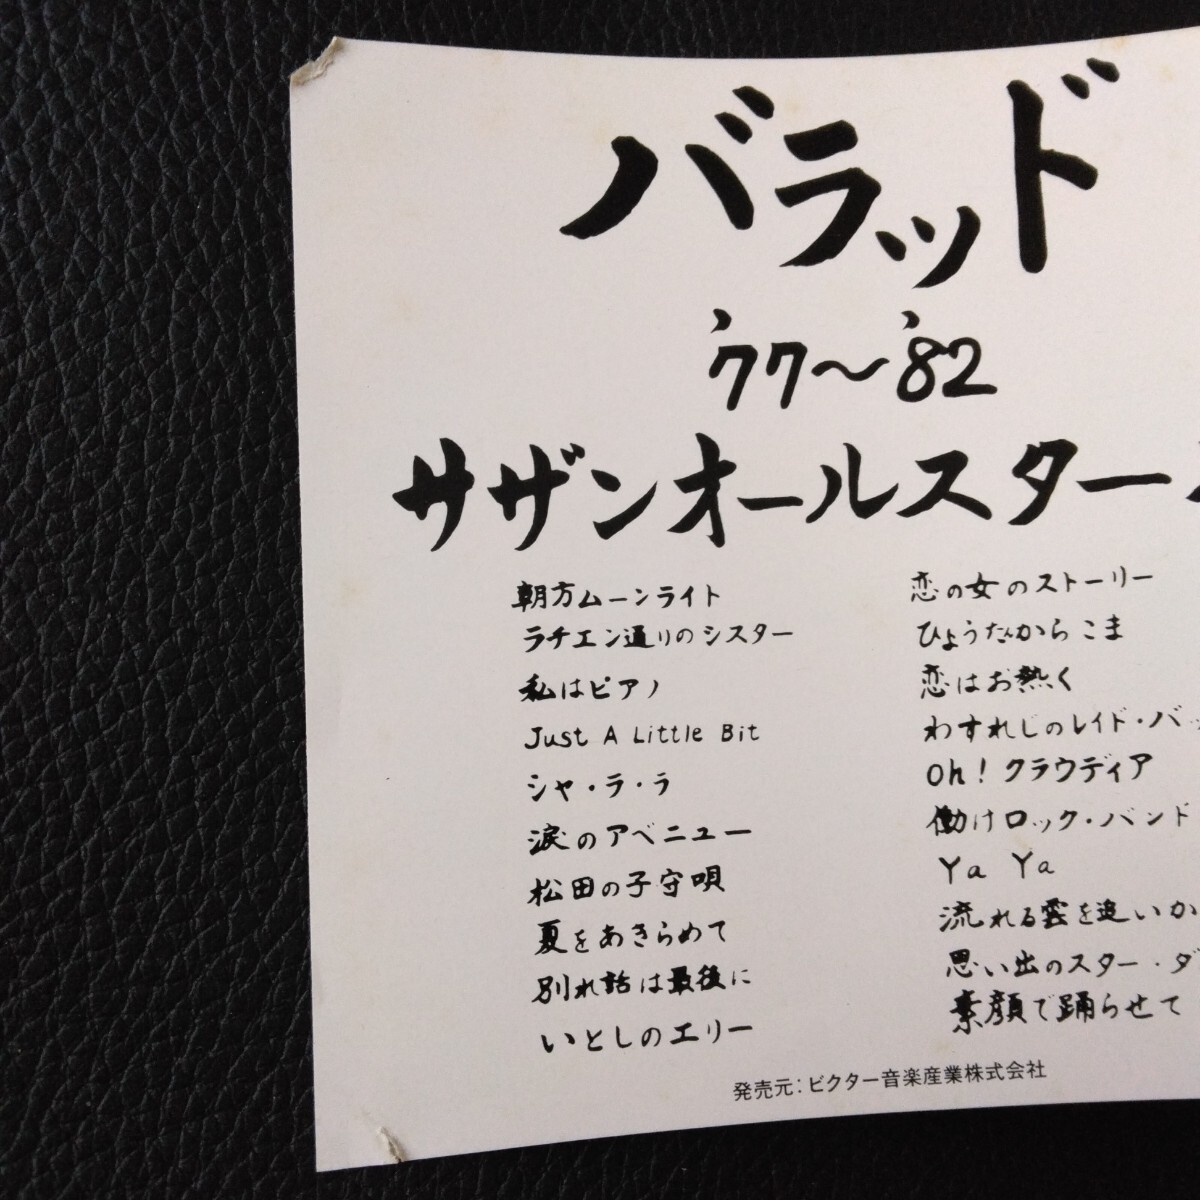 バラッド
'77〜'82
サザンオールスター
朝方ムーンライト
ラチエン通りのシスター
私はピアノ
Just A Little Bit
シャ・ラ・ラ
涙のアベニュー
松田の子守唄
夏をあきらめて
別れ話は最後に
いとしのエリー
恋の女のストーリー
ひょうたんからこま
恋はお熱く
わすれじのレイド・バッ
Oh! クラウディア
働けロック・バンド
Ya Ya
流れる雲を追いか
思い出のスター・ダ
素顔で踊らせて
発売元:ビクター音楽産業株式会社